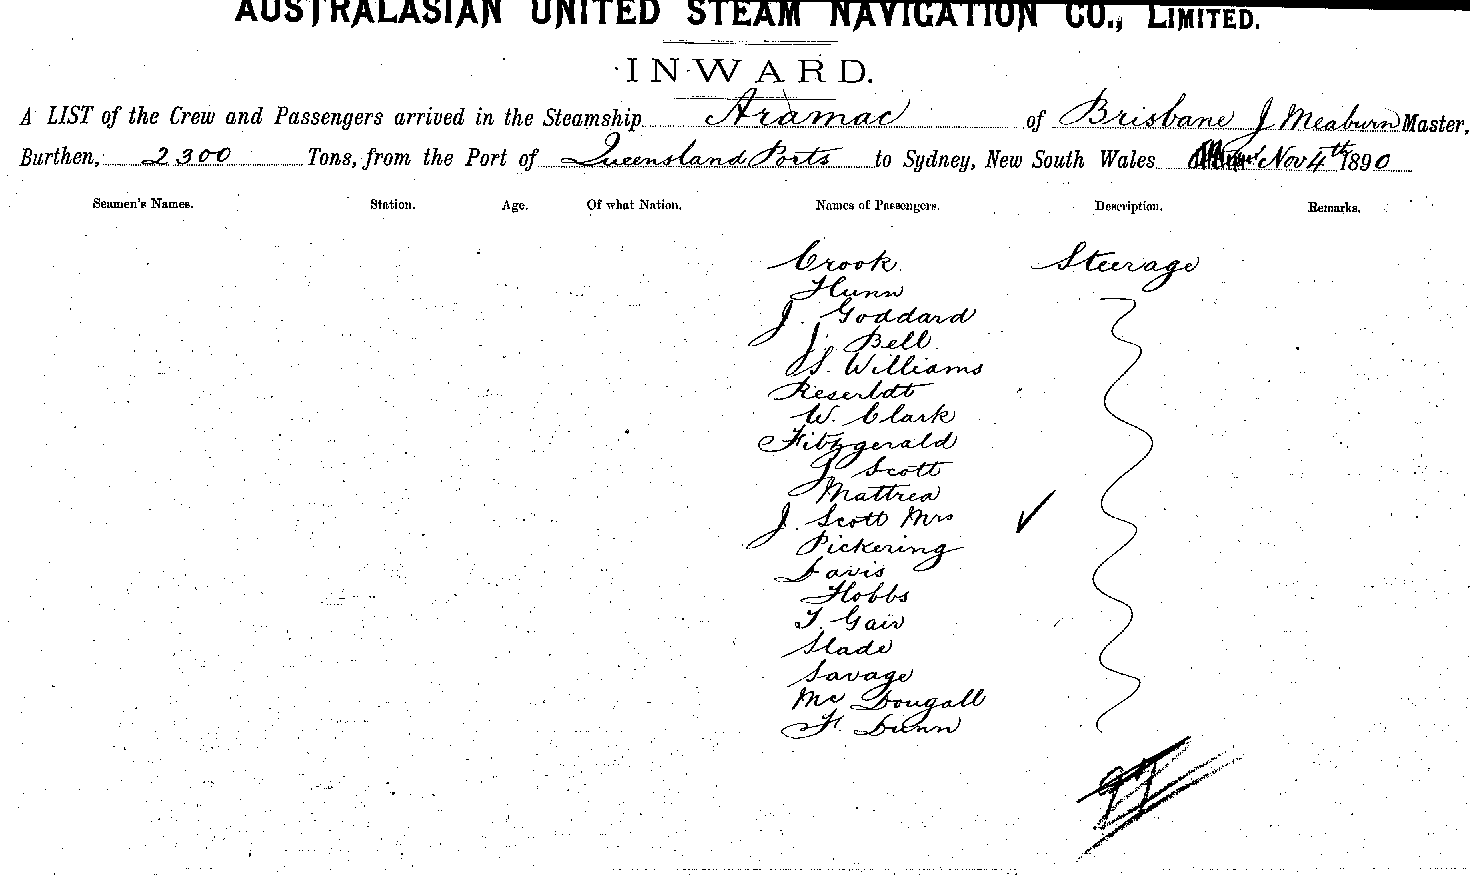 AUSTRALASIAN UNITED STEAM NAVIGATION CO., LIMITED.
INWARD.
A LIST of the Crew and Passengers arrived in the Steamship Aramac of Brisbane J Meaburn Master,
Burthen, 2300 Tons, from the Port of Queensland Ports to Sydney, New South Wales Nov 4th 1890
Seamen's Names. Station. Age. Of what Nation. Names of Passengers. Description. Remarks.
Crook Steerage
Hunn
J. Goddard
J. Bell
S. Williams
W. Clark
Fitzgerald
J Scott
Mattrea
J. Scott Mrs
Pickering
Davis
Hobbs
T. Gair
Slade
Savage
Mc Dougall
F. Dunn